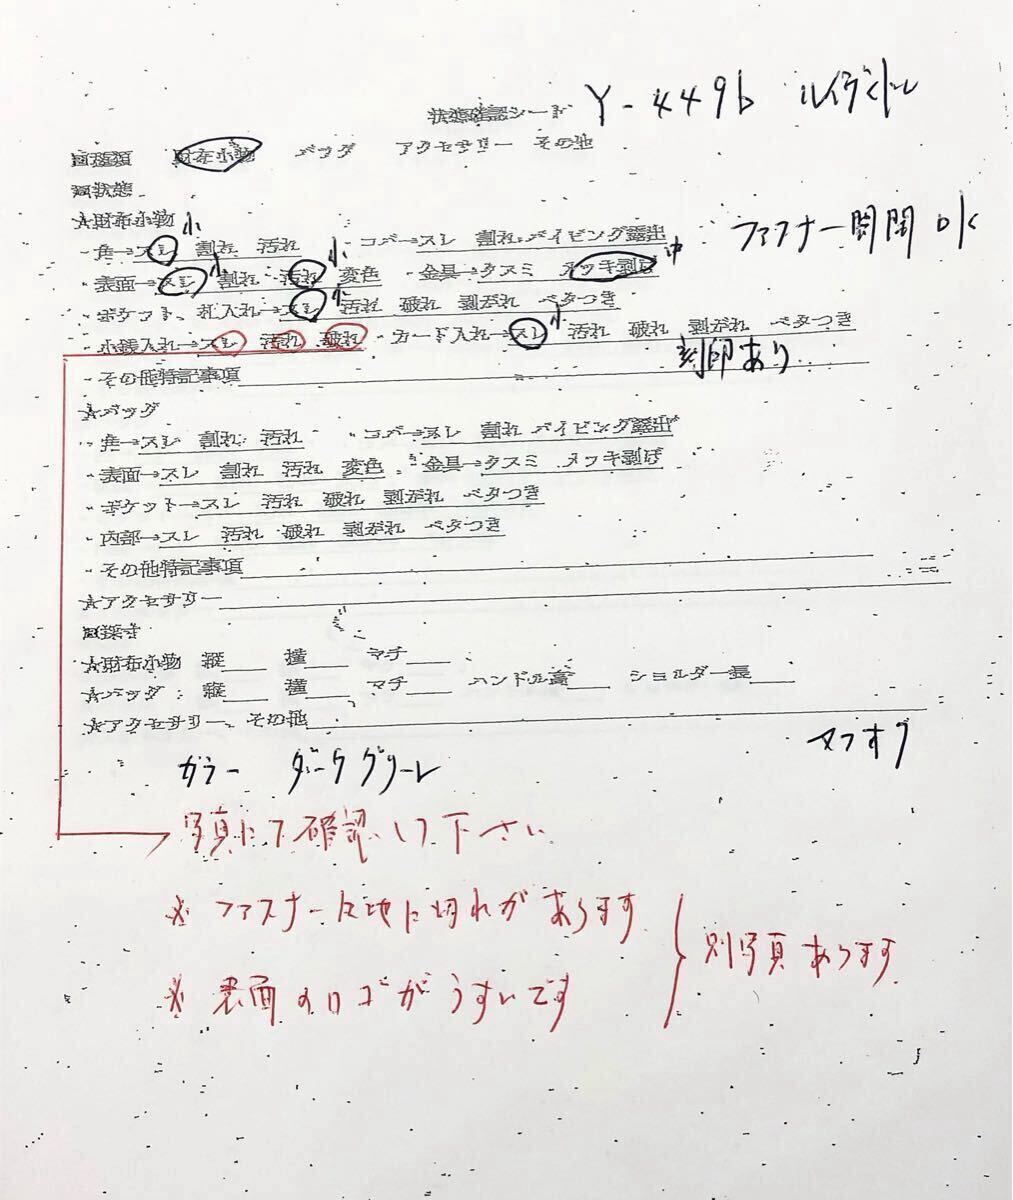 状態確認シート Y-449b ルイヴィトン
■種類 財布小物 バッグ アクセサリー その他
■状態
★財布小物
・角→スレ 小 割れ 汚れ ・コバ→スレ 割れ パイピング露出 ファスナー開閉 OK
・表面→スレ 小 割れ 汚れ 小 変色 ・金具→クスミ メッキ剥げ 中
・ポケット、札入れ→スレ 小 汚れ 破れ 剥がれ ベタつき
・小銭入れ→スレ 汚れ 破れ ・カード入れ→スレ 小 汚れ 破れ 剥がれ ベタつき
・その他特記事項 刻印あり
★バッグ
・角→スレ 割れ 汚れ ・コバ→スレ 割れ パイピング露出
・表面→スレ 割れ 汚れ 変色 ・金具→クスミ メッキ剥げ
・ポケット→スレ 汚れ 破れ 剥がれ ベタつき
・内部→スレ 汚れ 破れ 剥がれ ベタつき
・その他特記事項
★アクセサリー
■採寸
★財布小物 縦 横 マチ
★バッグ 縦 横 マチ ハンドル高 ショルダー長
★アクセサリー、その他
カラー ダークグリーン
写真にて確認して下さい
※ ファスナー生地に切れがあります
別写真あります
※ 表面のロゴがうすいです